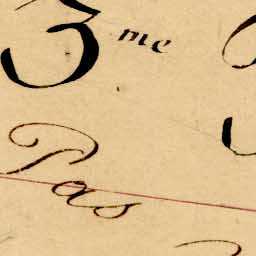 3me
Pas